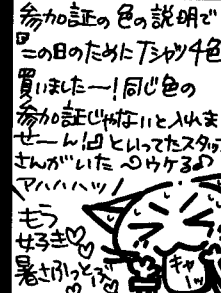 参加証の色の説明で
この日のためにTシャツ4色
買いました〜!同じ色の
参加証じゃないと入れま
せーん!といってたスタッフ
さんがいた ウケる
アハハハッ/
もう
好き♡♡
暑さふっとぶ
キャー